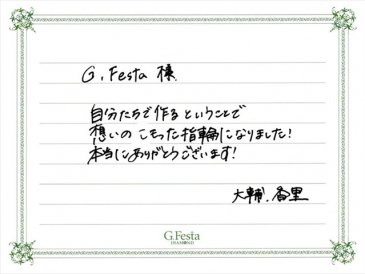 G.Festa 様
自分たちで作るということで
想いのこもった指輪になりました!
本当にありがとうございます!
大輔.香里
G.Festa
DIAMOND